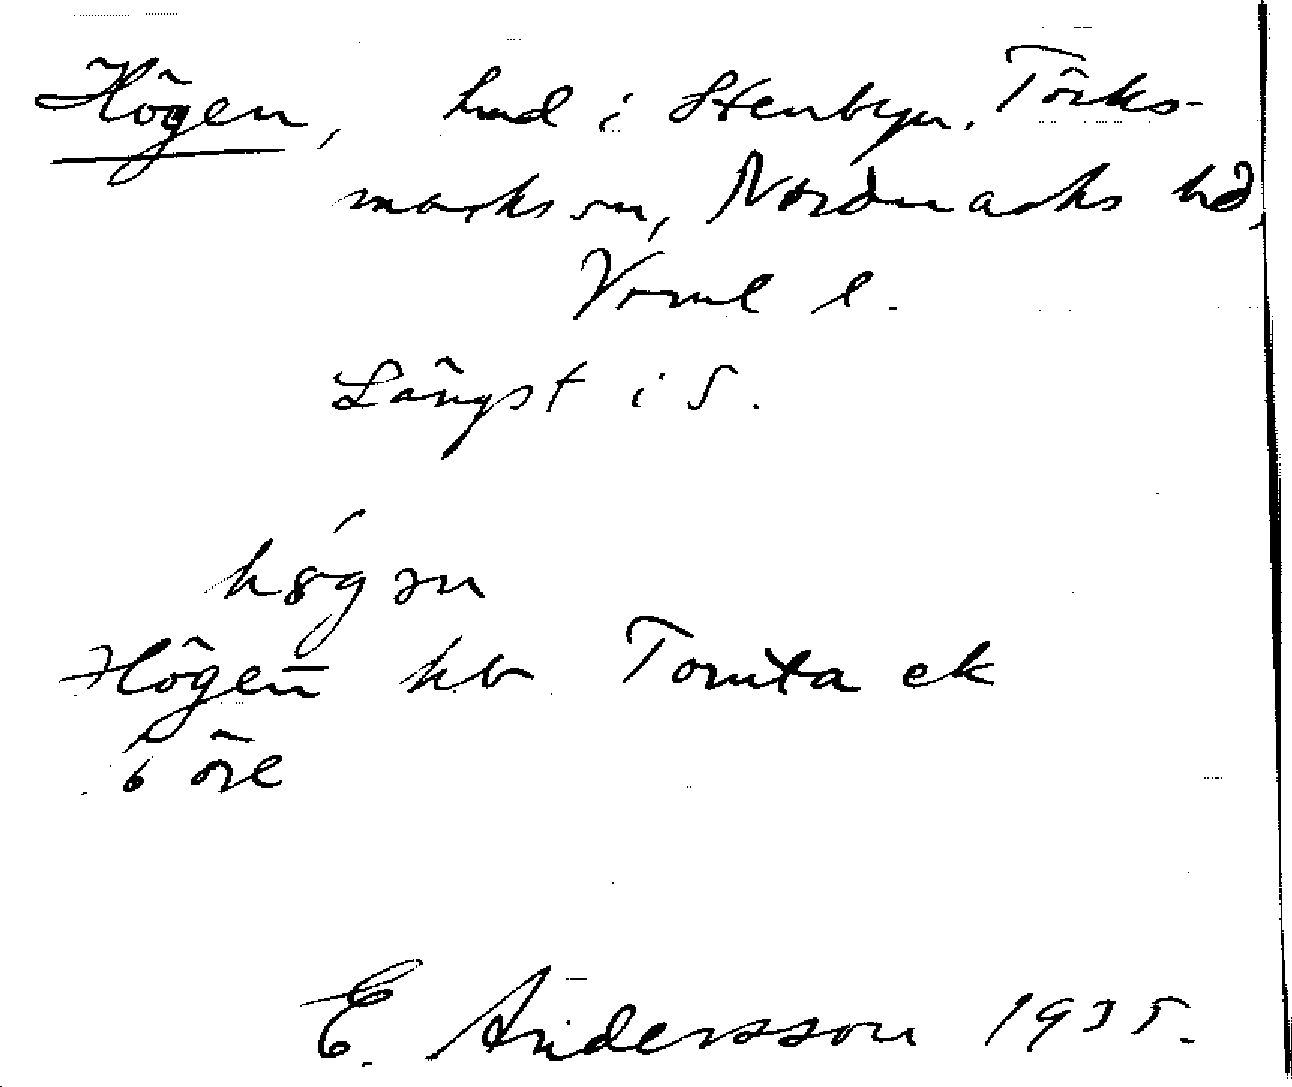 Högen, hmd i Stenbyn, Töcks-
marks sn, Nordmarks hd,
Vrml l.
Längst i S.
hög ən
Högen kb Tomta ek
öre
E. Andersson 1935.